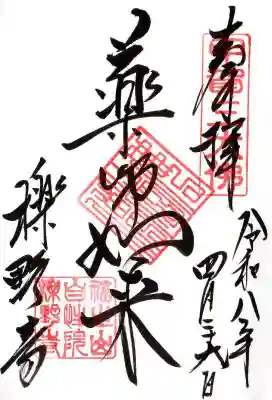 奉拝
令和八年
四月二九日
薬師如来
櫟野寺
福生山
自性院
櫟野寺